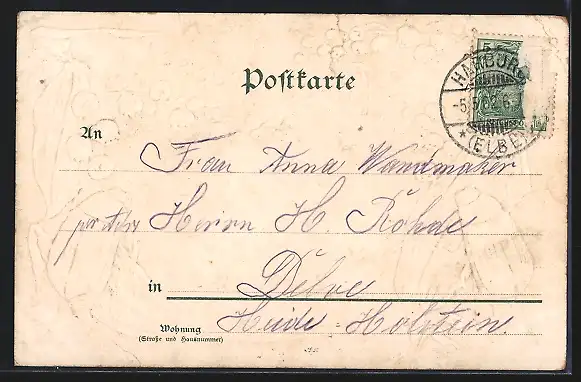 Postkarte
5
HAMBURG
-5.
*(ELBE)
An
Frau Anna Wandmaker
per Adr Herrn H. Rohde
in Delve
Heide-Holstein
Wohnung
(Straße und Hausnummer)